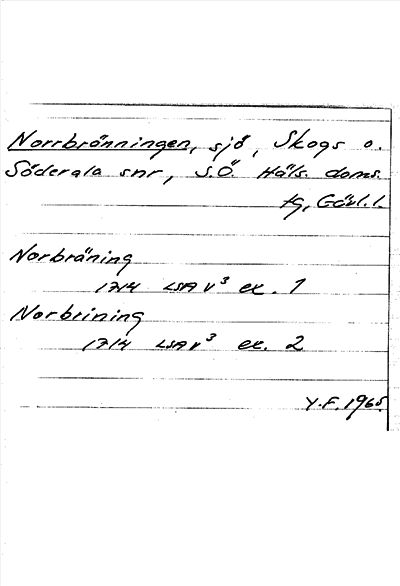 Norrbränningen, sjö, Skogs o.
Söderala snr, S.Ö. Häls. doms.
tg, Gävl.l.
Norbräning
1714 LSA V³ ex. 1
Norbrining
1714 LSA V³ ex. 2
Y.F. 1965.